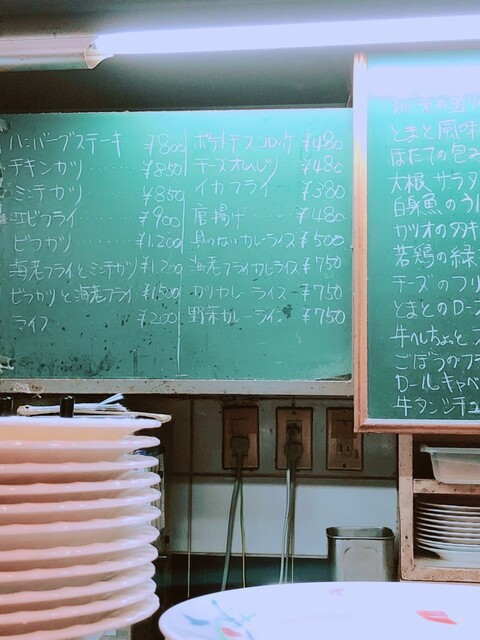 ハンバーグステーキ ¥800
チキンカツ ¥850
ミンチカツ ¥850
エビフライ ¥900
ビフカツ ¥1.200
海老フライとミンチカツ ¥1.200
ビフカツと海老フライ ¥1500
ライス ¥200
ポテトチーズコロッケ ¥480
チーズオムレツ ¥480
イカフライ ¥380
唐揚げ ¥480
具のないカレーライス ¥500
海老フライカレーライス ¥750
カツカレーライス ¥750
野菜カレーライス ¥750
とまと風味
ほたての包み
大根サラダ
白身魚のう
カツオのタタキ
若鶏の緑
チーズのフリ
とまとのロー
牛へちょっと
ごぼうのフラ
ロールキャベ
牛タンシチュ